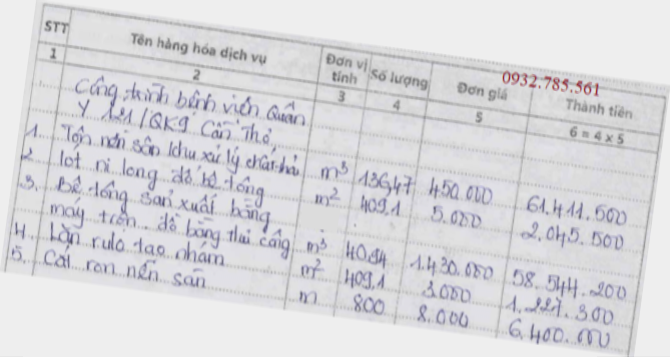 STT Tên hàng hóa dịch vụ Đơn vị tính Số lượng Đơn giá Thành tiền
0932.785.561
1 2 3 4 5 6 = 4 x 5
Công trình bệnh viện Quân
Y 121/QK9 Cần Thơ,
1. Tôn nền sân khu xử lý chất thải m³ 136,47 450.000 61.411.500
2. lót ni long đổ bê tông m² 409,1 5.000 2.045.500
3. Bê tông sản xuất bằng
máy trộn đổ bằng thủ công m³ 40.94 1.430.000 58.544.200
4. Lăn rulo tạo nhám m² 409,1 3.000 1.227.300
5. Cắt ron nền sân m 800 8.000 6.400.000